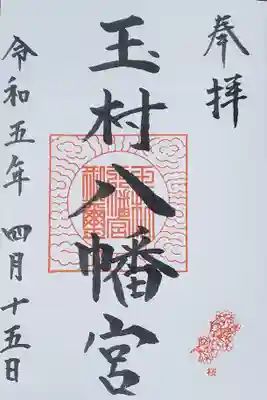 奉拝
玉村八幡宮
令和五年 四月十五日
桜